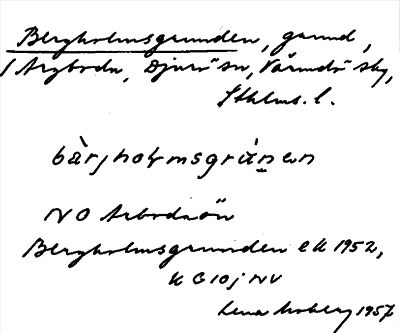 Bergholmsgrunden, grund,
Djurö sn, Värmdö skg,
Sthlms l.
bàrjholmsgrúnen
NO
Bergholmsgrunden ek 1952,
K C10j NV
Lena Moberg 1957